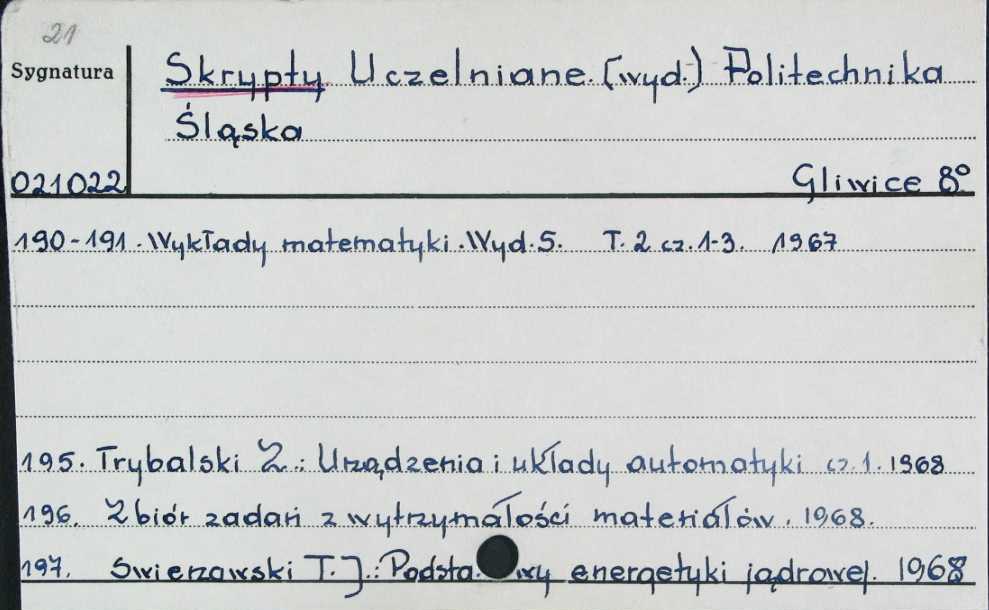 21
Sygnatura
Skrypty Uczelniane. (wyd.) Politechnika
Śląska
021022
Gliwice 8°
190-191. Wykłady matematyki. Wyd. 5. T. 2 cz. 1-3. 1967
195. Trybalski Z.: Urządzenia i układy automatyki cz. 1. 1968
196. Zbiór zadań z wytrzymałości materiałów. 1968.
197. Swierzawski T. J.: Podstawy energetyki jądrowej. 1968